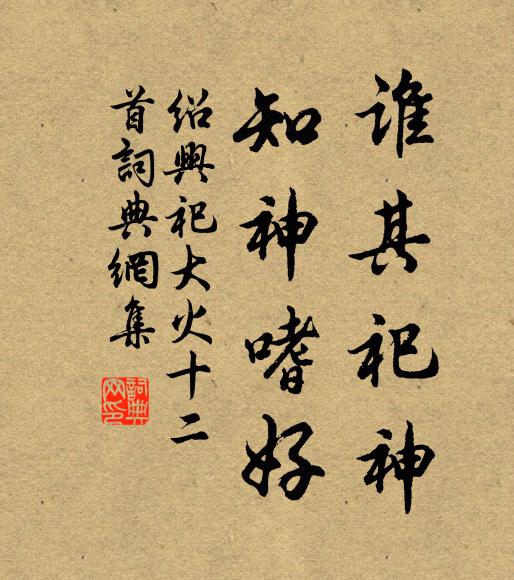 誰其祀神
知神嗜好
紹興祀大火十二
首詞典網集
詞典
网印